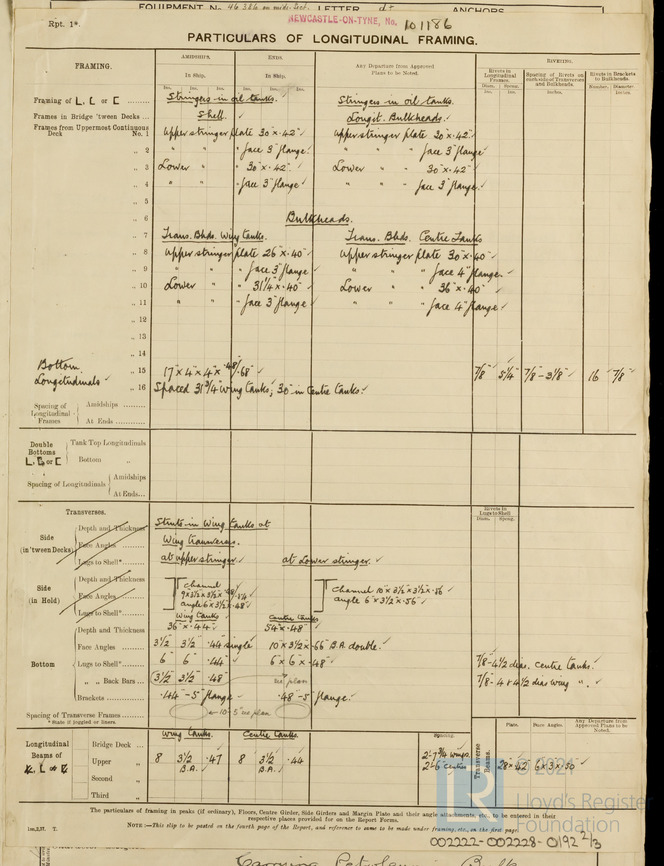 EQUIPMENT No 46386 on mids. Sect. LETTER d† ANCHORS
Rpt. 1*.
NEWCASTLE-ON-TYNE, No. 101186
PARTICULARS OF LONGITUDINAL FRAMING.
FRAMING.
AMIDSHIPS.
ENDS.
Any Departure from Approved
Plans to be Noted.
RIVETING.
In Ship.
In Ship.
Rivets in
Longitudinal
Frames.
Spacing of Rivets on
each side of Transverses
and Bulkheads.
Rivets in Brackets
to Bulkheads.
Ins. Ins. Ins. Ins. Ins. Ins.
Diam. Spcng.
Ins. Ins.
Inches.
Number. Diameter
Inches.
Framing of L, [ or [
Stringers in oil tanks.
Stringers in oil tanks.
Frames in Bridge 'tween Decks
Shell.
Longit. Bulkheads.
Frames from Uppermost Continuous
Deck No. 1
upper stringer plate 30" x .42"
upper stringer plate 30" x .42"
„ 2 " " " face 3" flange
" " face 3" flange
„ 3 Lower " " 30" x .42"
Lower " 30" x .42"
„ 4 " " " face 3" flange
" " " face 3" flange
„ 5
„ 6 Bulkheads.
„ 7 Trans. Bhds. Wing tanks.
Trans. Bhds. Centre Tanks
„ 8 upper stringer plate 26" x .40"
upper stringer plate 30" x .40"
„ 9 " " " face 3" flange
" " " face 4" flange.
„ 10 Lower " " 31 1/4" x .40"
Lower " " 36" x .40"
„ 11 " " " face 3" flange
" " " face 4" flange
„ 12
„ 13
„ 14
Bottom
Longitudinals
„ 15 17" x 4" x 4" x .48/.68"
7/8" 5 1/4" 7/8 - 3 1/8" 16 7/8"
„ 16 Spaced 31 3/4" wing tanks; 30" in Centre tanks.
Spacing of
Longitudinal
Frames
Amidships
At Ends
Double
Bottoms
L, [ or [
Tank Top Longitudinals
Bottom „
Spacing of Longitudinals
Amidships
At Ends
Transverses.
Rivets in
Lugs to Shell
Diam. Spcng.
Side
(in 'tween Decks)
Depth and Thickness
Face Angles
Lugs to Shell*
Struts in Wing tanks at
Wing transverses.
at upper stringer.
at Lower stringer.
Side
(in Hold)
Depth and Thickness
Face Angles
Lugs to Shell*
channel
angle 6 x 3 1/2 x .48
channel 10 x 3 1/2 x 3 1/2 x .56
angle 6 x 3 1/2 x .56
Wing Tanks
Centre Tanks
Bottom
Depth and Thickness
36" x .44
54" x .48"
Face Angles
3 1/2 3 1/2 .44 single
10 x 3 1/2 x .66 B.A. double.
Lugs to Shell*
6 6 .44
6 x 6 x .48"
7/8 - 4 1/2 dias. centre tanks.
„ „ Back Bars
(3 1/2 3 1/2 .48)
plan
7/8 - 4 & 4 1/2 dias wing ".
Brackets
.44 - 5" flange
.48 - 5" flange.
Spacing of Transverse Frames
or 10-5 as plan
* State if joggled or liners.
Longitudinal
Beams of
L, [ or [
Wing tanks. Centre tanks.
Bridge Deck
Upper „
Second „
Third „
8 3 1/2 .47
B.A.
8 3 1/2 .44
B.A.
Spacing.
2'-7 3/4 wings.
2'-6 centre
Transverse
Beams.
Plate. Face Angles. Any Departure from
Approved Plans to be
Noted.
28 x .42 6 x 3 x .50
The particulars of framing in peaks (if ordinary), Floors, Centre Girder, Side Girders and Margin Plate and their angle attachments, etc., to be entered in their
respective places provided for on the Report Forms.
NOTE:—This slip to be posted on the fourth page of the Report, and reference to same to be made under framing, etc., on the first page.
© 2021
Lloyd's Register
Foundation
002222-002228-0192 2/3
Carrying Petroleum in Bulk